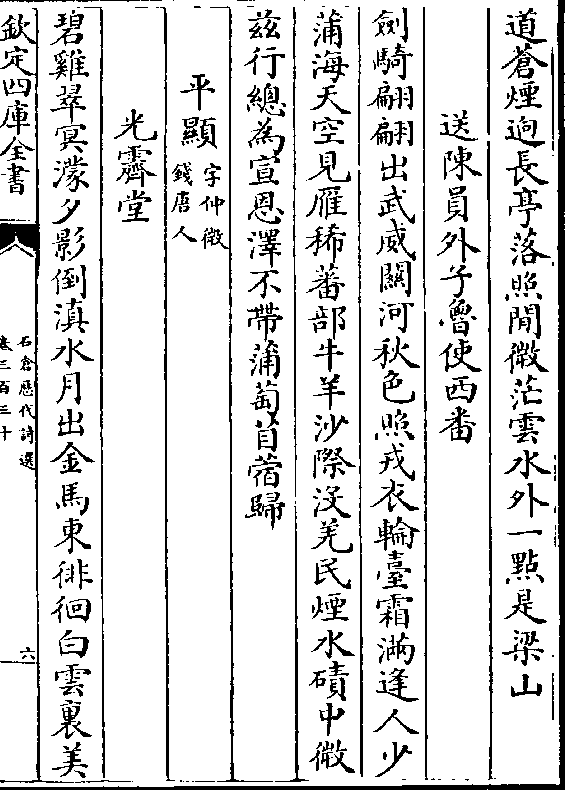 道蒼煙逈長亭落照間微茫雲水外一點是梁山
送陳員外子魯使西番
劍騎翩翩出武威關河秋色照戎衣輪臺霜滿逢人少
蒲海天空見雁稀蕃部牛羊沙際沒羌民煙水磧中微
兹行總為宣恩澤不帶蒲萄苜蓿歸
平顯字仲微
錢唐人
光霽堂
碧雞翠冥濛夕影倒滇水月出金馬東徘徊白雲裏美
欽定四庫全書
石倉歷代詩選
卷三百三十
六